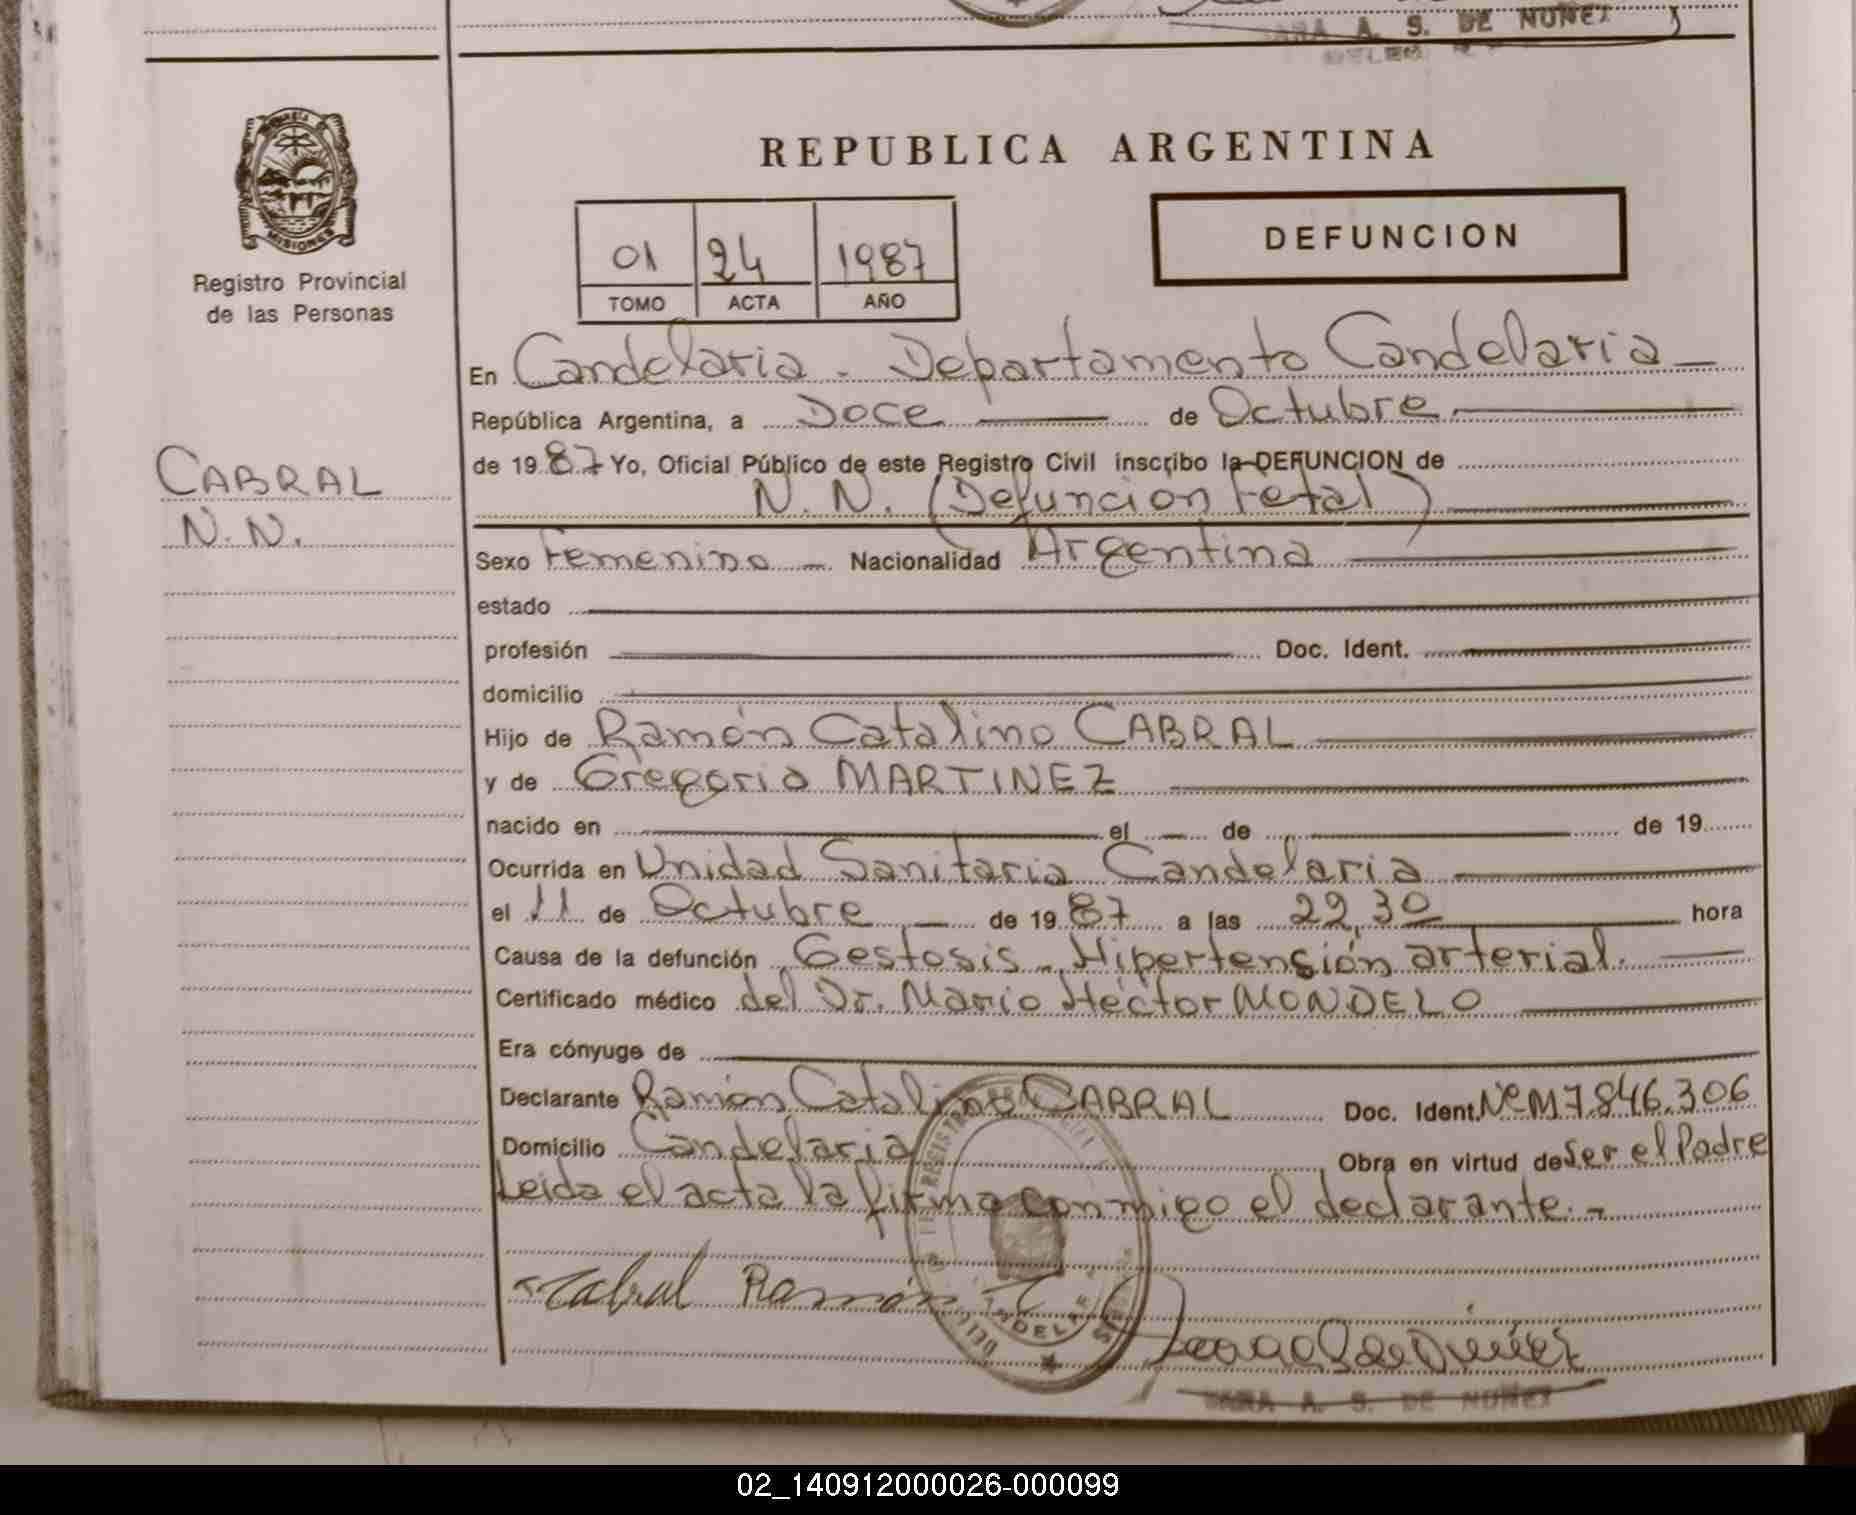 SARA A. S. DE NUÑEZ
MISIONES
Registro Provincial
de las Personas
CABRAL
N.N.
REPUBLICA ARGENTINA
01 24 1987
TOMO ACTA AÑO
DEFUNCION
En Candelaria - Departamento Candelaria
República Argentina, a Doce de Octubre
de 1987 Yo, Oficial Público de este Registro Civil inscribo la DEFUNCION de
N. N. (Defuncion Fetal)
Sexo Femenino Nacionalidad Argentina
estado
profesión Doc. Ident.
domicilio
Hijo de Ramón Catalino CABRAL
y de Gregoria MARTINEZ
nacido en el de de 19
Ocurrida en Unidad Sanitaria Candelaria
el 11 de Octubre de 1987 a las 22,30 hora
Causa de la defunción Gestosis - Hipertensión arterial.
Certificado médico del Dr. Mario Héctor MONDELO
Era cónyuge de
Declarante Ramón Catalino CABRAL Doc. Ident. Nº M7.846.306
Domicilio Candelaria Obra en virtud de Ser el Padre
Leida el acta la firma conmigo el declarante.-
Cabral Ramón C
SARA A. S. DE NUÑEZ
02_140912000026-000099